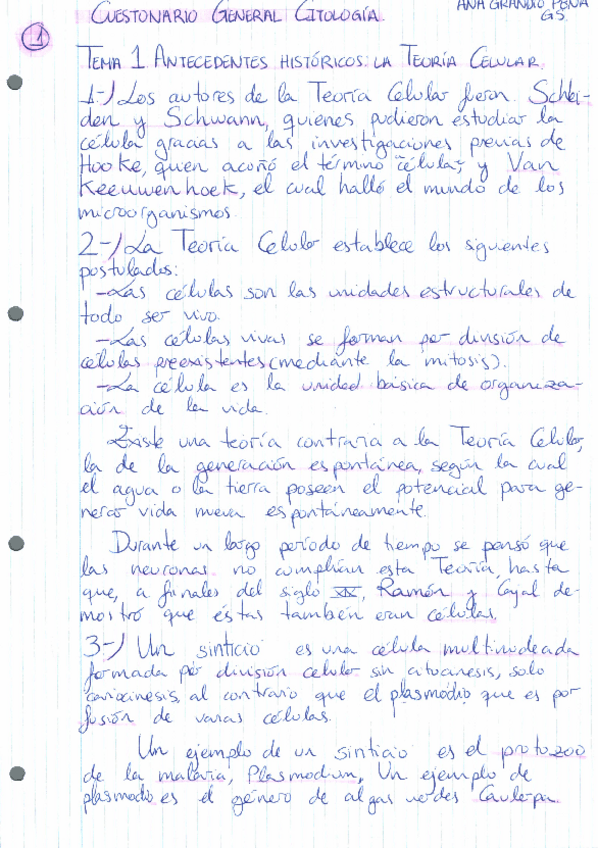 ANA GRANDÍO PENA
CUESTONARIO GENERAL CITOLOGÍA.
G5
1
TEMA 1 ANTECEDENTES HISTÓRICOS: LA TEORÍA CELULAR.
1-) Los autores de la Teoría Celular fueron Schlei-
den y Schwann, quienes pudieron estudiar la
célula gracias a las investigaciones previas de
Hooke, quien acoñó el término "célula", y Van
Keeuwenhoek, el cual halló el mundo de los
microorganismos.
2-) La Teoría Celular establece los siguientes
postulados:
-Las células son las unidades estructurales de
todo ser vivo.
-Las células vivas se forman por división de
células preexistentes (mediante la mitosis).
-La célula es la unidad básica de organiza-
ción de la vida.
Existe una teoría contraria a la Teoría Celular,
la de la generación espontánea, según la cual
el agua o la tierra poseen el potencial para ge-
nerar vida nueva espontáneamente.
Durante un largo período de tiempo se pensó que
las neuronas no cumplían esta Teoría, hasta
que, a finales del siglo XIX, Ramón y Cajal de-
mostró que éstas también eran células.
3-) Un sinticio es una célula multinucleada
formada por división celular sin citocinesis, solo
cariocinesis, al contrario que el plasmodio que es por
fusión de varias células.
Un ejemplo de un sinticio es el protozoo
de la malaria, Plasmodium, Un ejemplo de
plasmodio es el género de algas verdes Caulerpa.